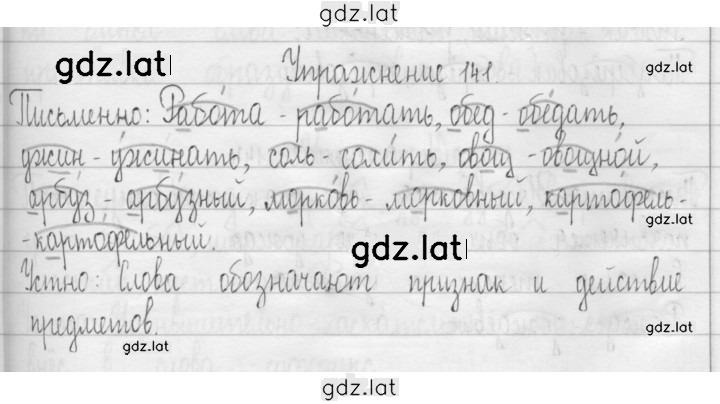 gdz.lat
gdz.lat Упражнение 141. gdz.lat
Письменно: Работа - работать, обед - обедать,
ужин - ужинать, соль - солить, овощ - овощной,
арбуз - арбузный, морковь - морковный, картофель-
gdz.lat
-картофельный. gdz.lat
Устно: Слова обозначают признак и действие
предметов. gdz.lat
gdz.lat
gdz.lat